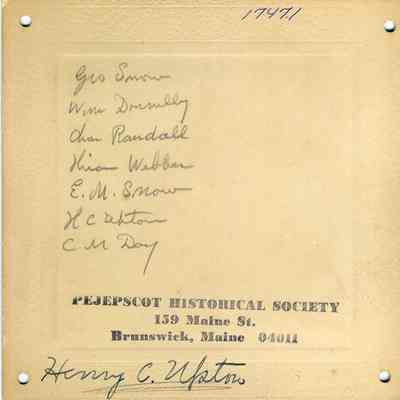 17471
Geo Snow
Wm Donnelly
Chas Randall
Hiram Webber
E. M. Snow
H C Upton
C M Day
PEJEPSCOT HISTORICAL SOCIETY
159 Maine St.
Brunswick, Maine 04011
Henry C. Upton